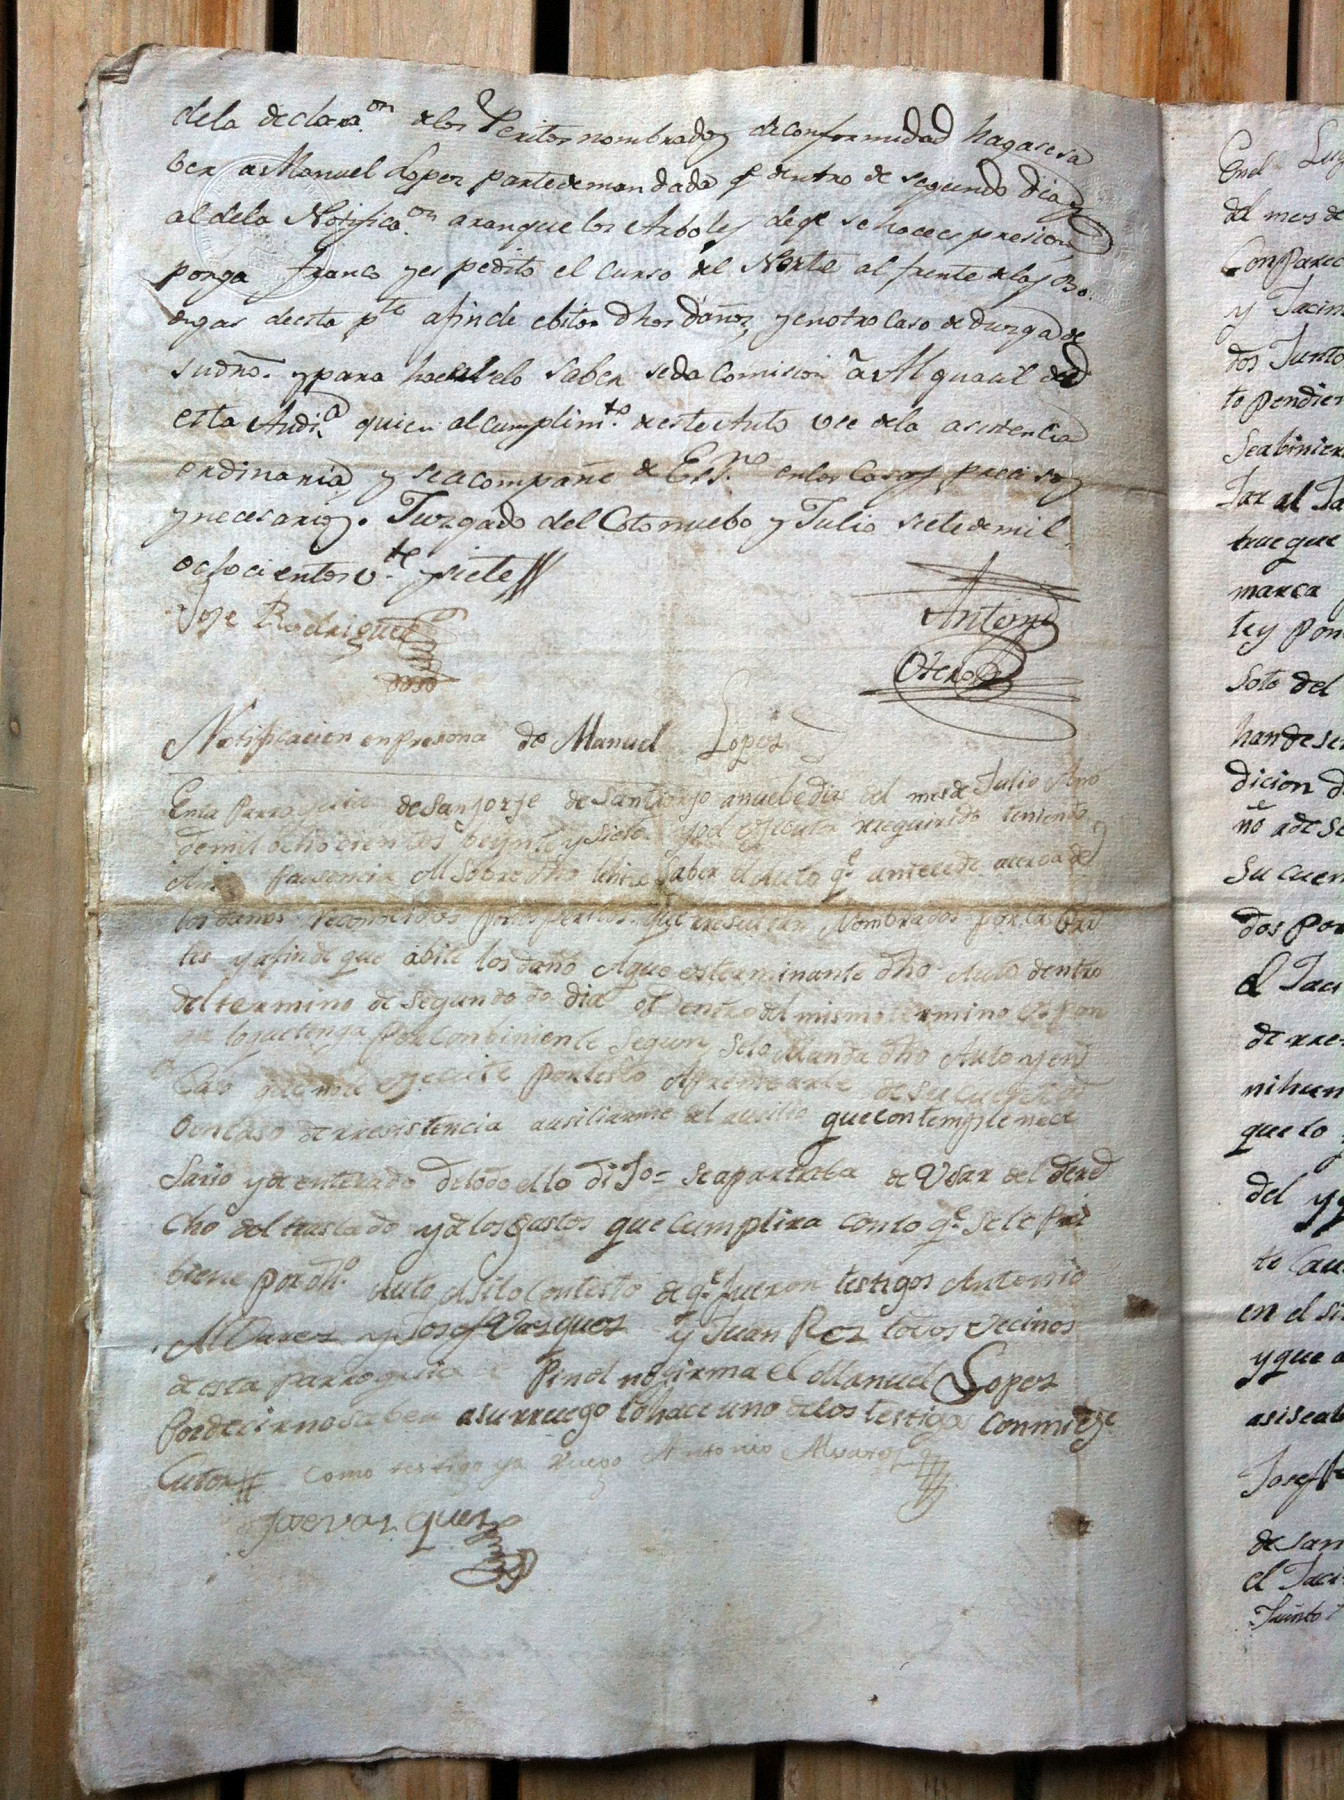 dela declara.on delos Peritos nombrados de conformidad hagase sa
ber a Manuel Lopez parte demandada q.e dentro de segundo dia
al dela Notifica.on aranque los Arboles deq.e se hace espresion
ponga franco y espedito el curso del Norte al frente delas Bo
degas de esta p.te afin de ebitar dhos daños, y en otro caso
su dño. y para hacerselo saber se da Comision à Alguacil de
esta Audi.a quien al cumplim.to de este Auto use dela asistencia
ordinaria y se acompañe de Ess.no en los Casos precisos
y necesarios. Juzgado del Coto nuebo y Julio siete de mil
ochocientos v.te y siete
Jose Rodriguez
Antonio
Otero
Notificacion en presona de Manuel Lopez
En la Parroquia de San Jorje de Santiorjo a nuebe dias del mes de Julio Año
de mil ochocientos beynte y siete yo el ejecutor rrequirido teniendo
Ami Pausencia Al Sobre dho le hice Saber el Auto q.e antecede acerca de
los daños reconocidos por los peritos que rresultan Nombrados por las Par
tes y afin de que abite los daños Aque es terminante dho Auto dentro
del termino de Segundo dia o dentro del mismo termino Espon
ga lo que tenga por Conbiniente Segun Selo Manda dho Auto y en
Caso que no le ejecute por testo Apremiarle de su cuenta
O en caso de rresistencia ausiliarme del ausilio que contemple nece
sario y de enterado de todo ello dijo = se apartaba de Usar del dere
cho del traslado y de los gastos que cumplira con lo q.e se le Pre
biene por dh.o Auto Asilo Contesto de q.e fueron testigos Antonio
Albarez y Josef Vazquez y Juan Rez todos Vecinos
de esta parroquia Pinol no firma el Manuel Lopez
Por decir no saber a su rruego lo hace uno delos testigos Con mi eje
Cutor
Como testigo y a Ruego Antonio Alvarez
Jose vazquez
En el Lug
del mes de
Comparec
y Jacin
dos Junto
to pendien
Se abinier
tar al Ja
trueque
marca
ley pon
Soto del
han de se
dicion d
Su cuen
dos por
el Jaci
de rre
nihun
que lo
del y
to Cau
en el si
y que a
asi se ab
Josef
de San
el Jaci
Junto